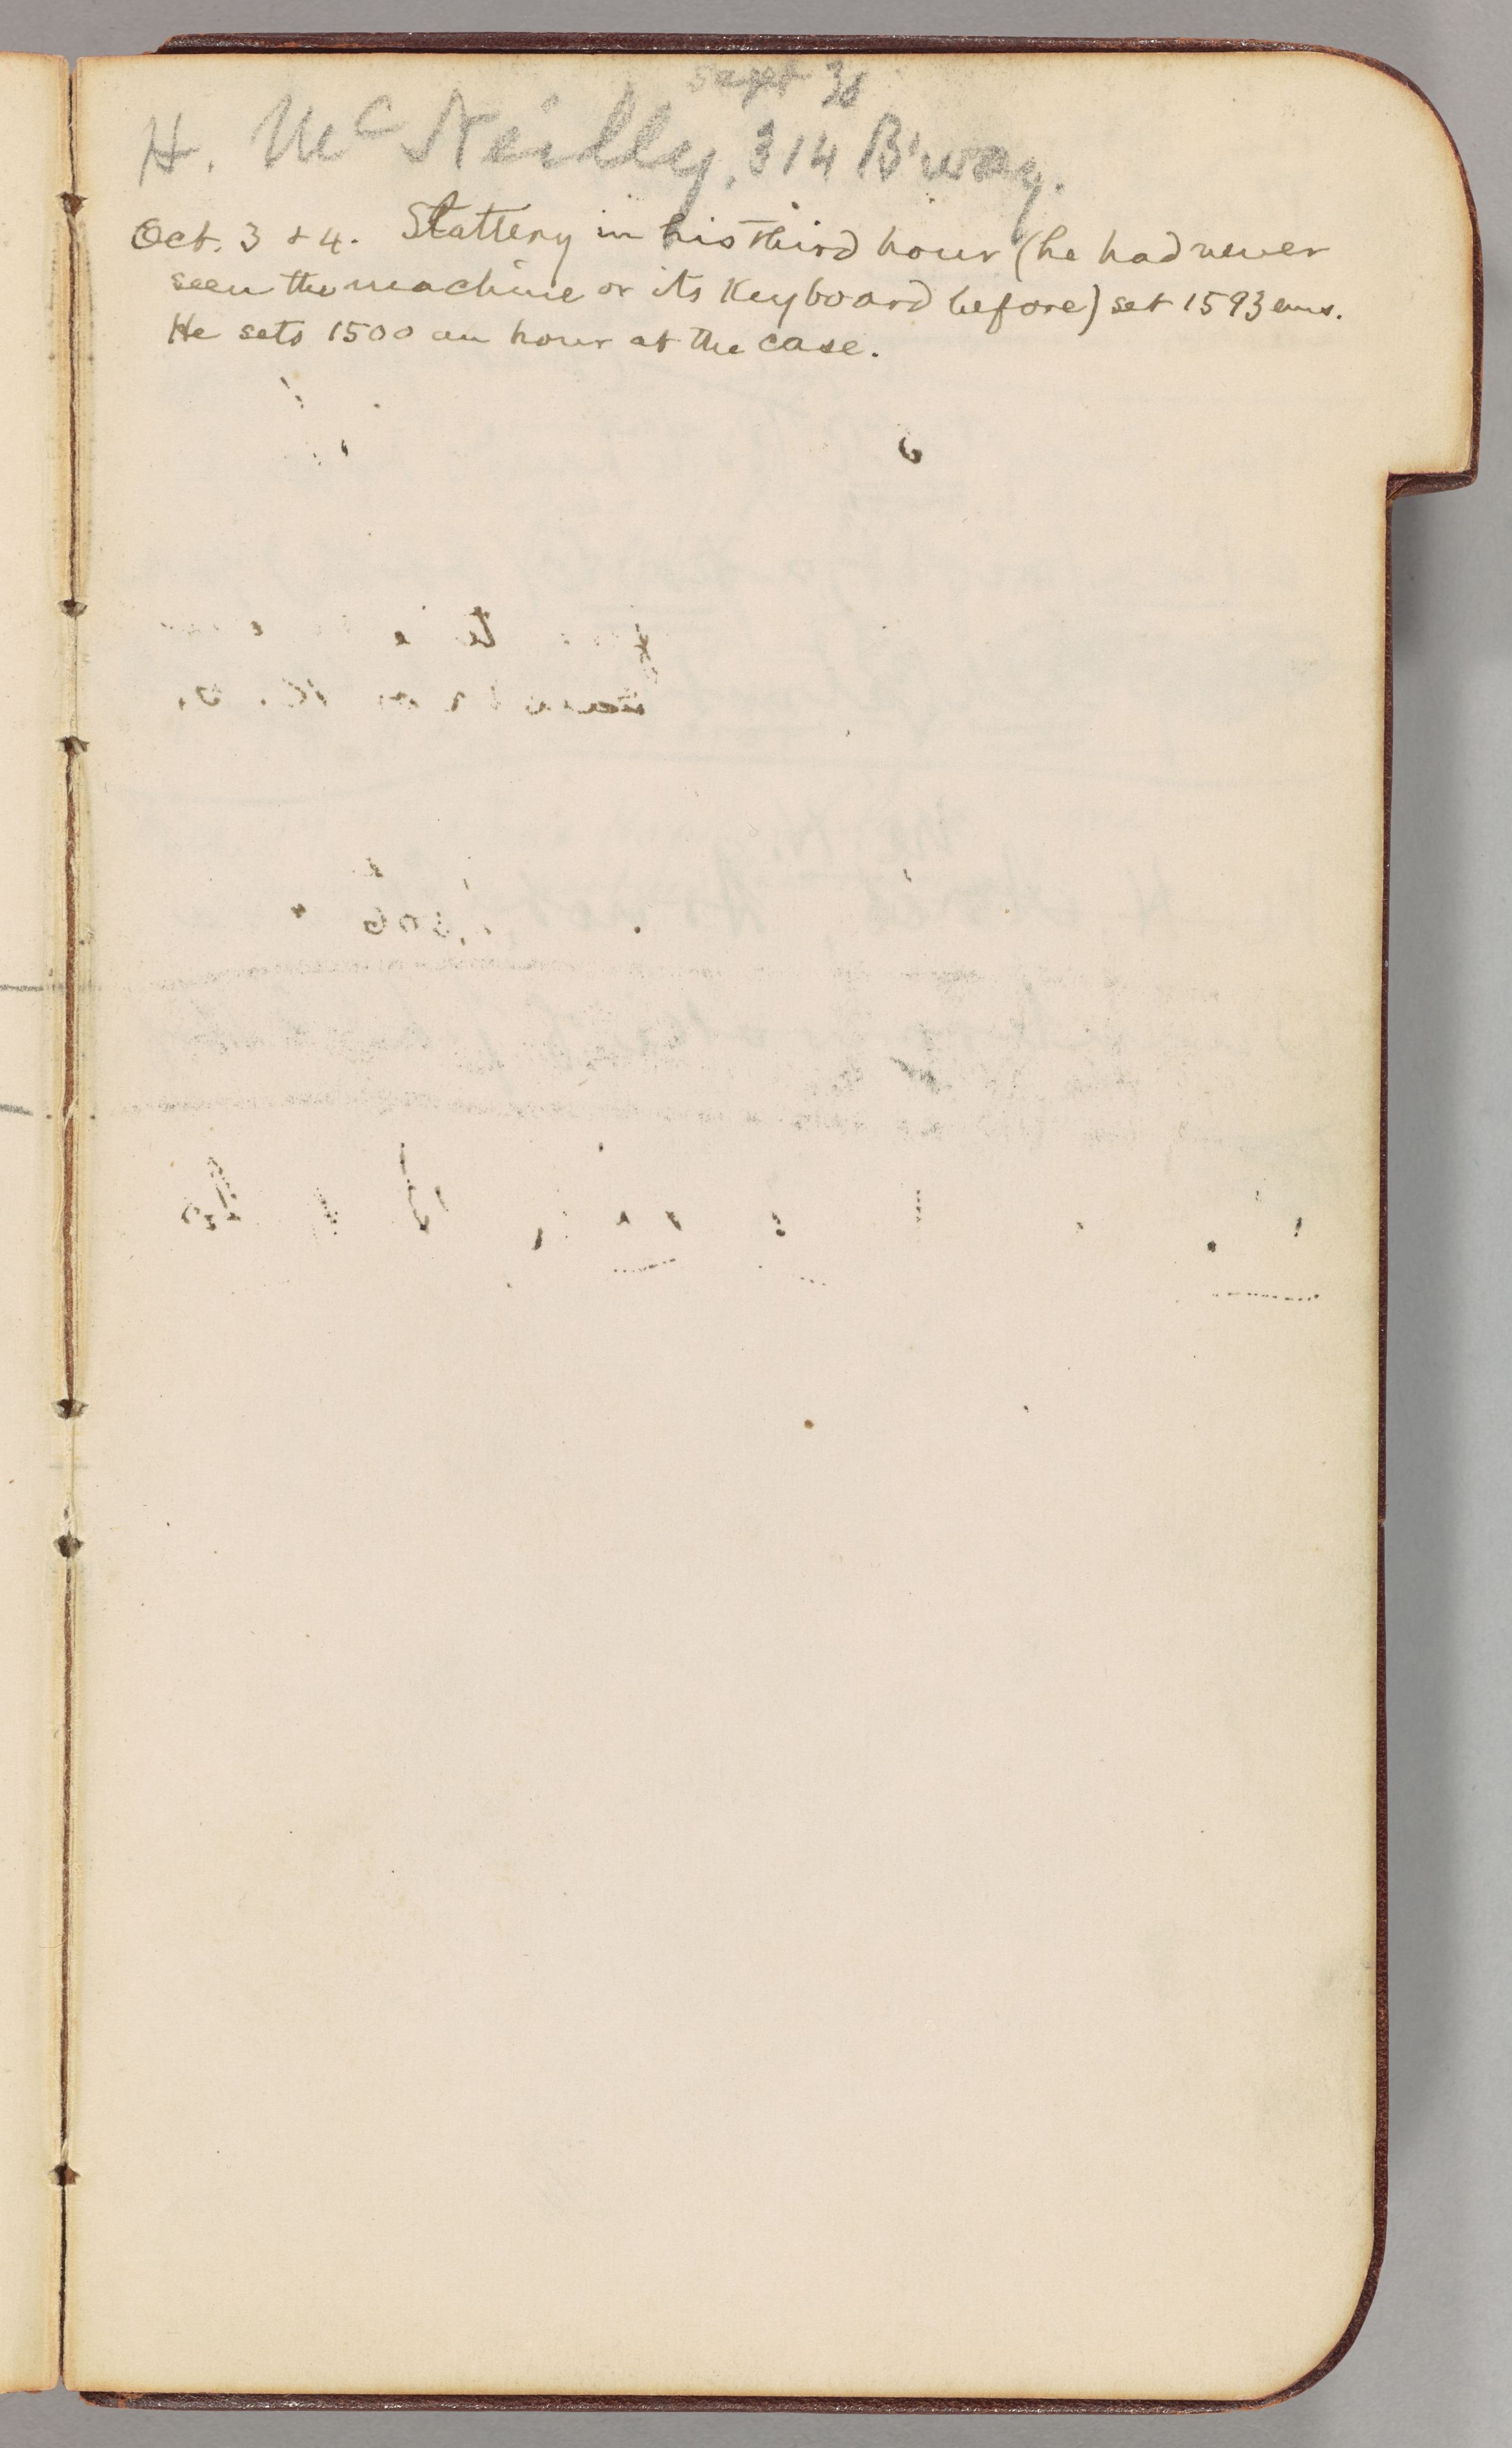 Sept 30
H. McNeilly, 314 B'way.
Oct. 3 & 4. Slattery in his third hour (he had never
seen the machine or its Keyboard before) set 1593 ems.
He sets 1500 an hour at the case.